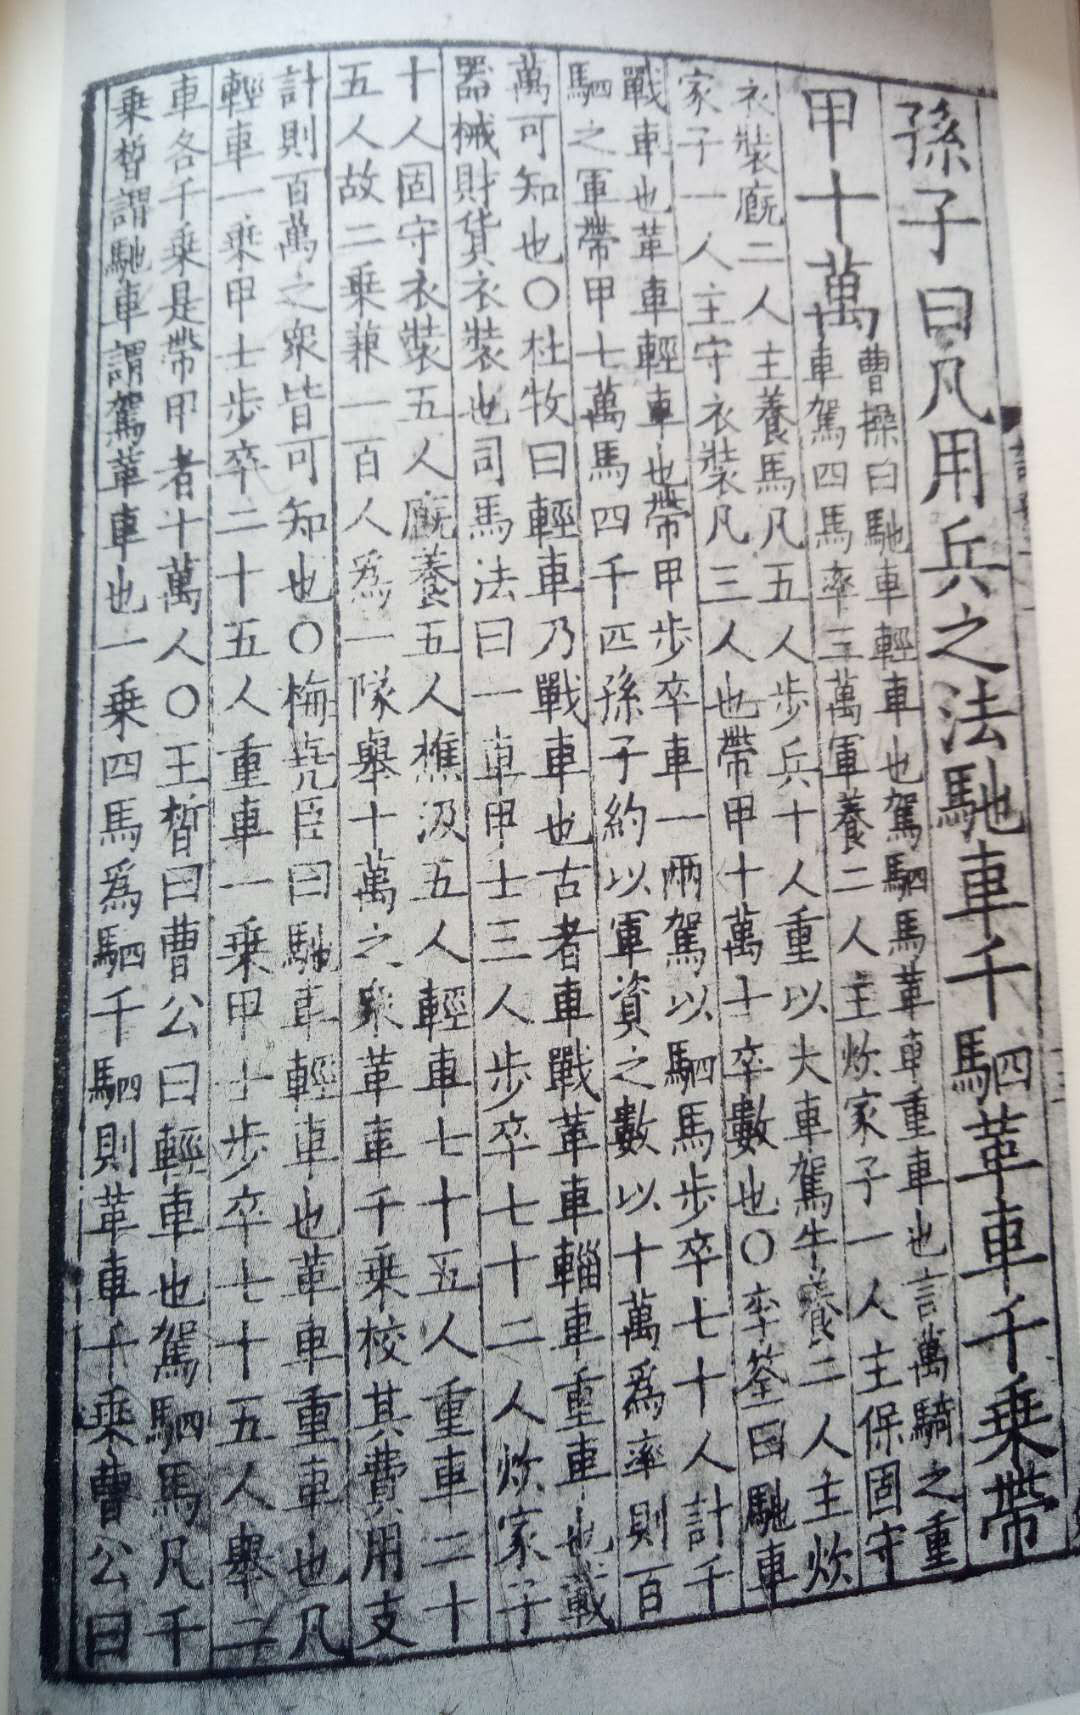 孫子曰凡用兵之法馳車千駟革車千乘帶
甲十萬
曹操曰馳車輕車也駕駟馬革車重車也言萬騎之重
車駕四馬率三萬軍養二人主炊家子一人主保固守
衣裝廐二人主養馬凡五人步兵十人重以大車駕牛養二人主炊
家子一人主守衣裝凡三人也帶甲十萬士卒數也〇李筌曰馳車
戰車也革車輕車也帶甲步卒車一兩駕以駟馬步卒七十人計千
駟之軍帶甲七萬馬四千匹孫子約以軍資之數以十萬爲率則百
萬可知也〇杜牧曰輕車乃戰車也古者車戰革車輜車重車也載
器械財貨衣裝也司馬法曰一車甲士三人步卒七十二人炊家子
十人固守衣裝五人廐養五人樵汲五人輕車七十五人重車二十
五人故二乘兼一百人爲一隊舉十萬之衆革車千乘校其費用支
計則百萬之衆皆可知也〇梅堯臣曰馳車輕車也革車重車也凡
輕車一乘甲士步卒二十五人重車一乘甲士步卒七十五人舉二
車各千乘是帶甲者十萬人〇王晳曰曹公曰輕車也駕駟馬凡千
乘晳謂馳車謂駕革車也一乘四馬爲駟千駟則革車千乘曹公曰